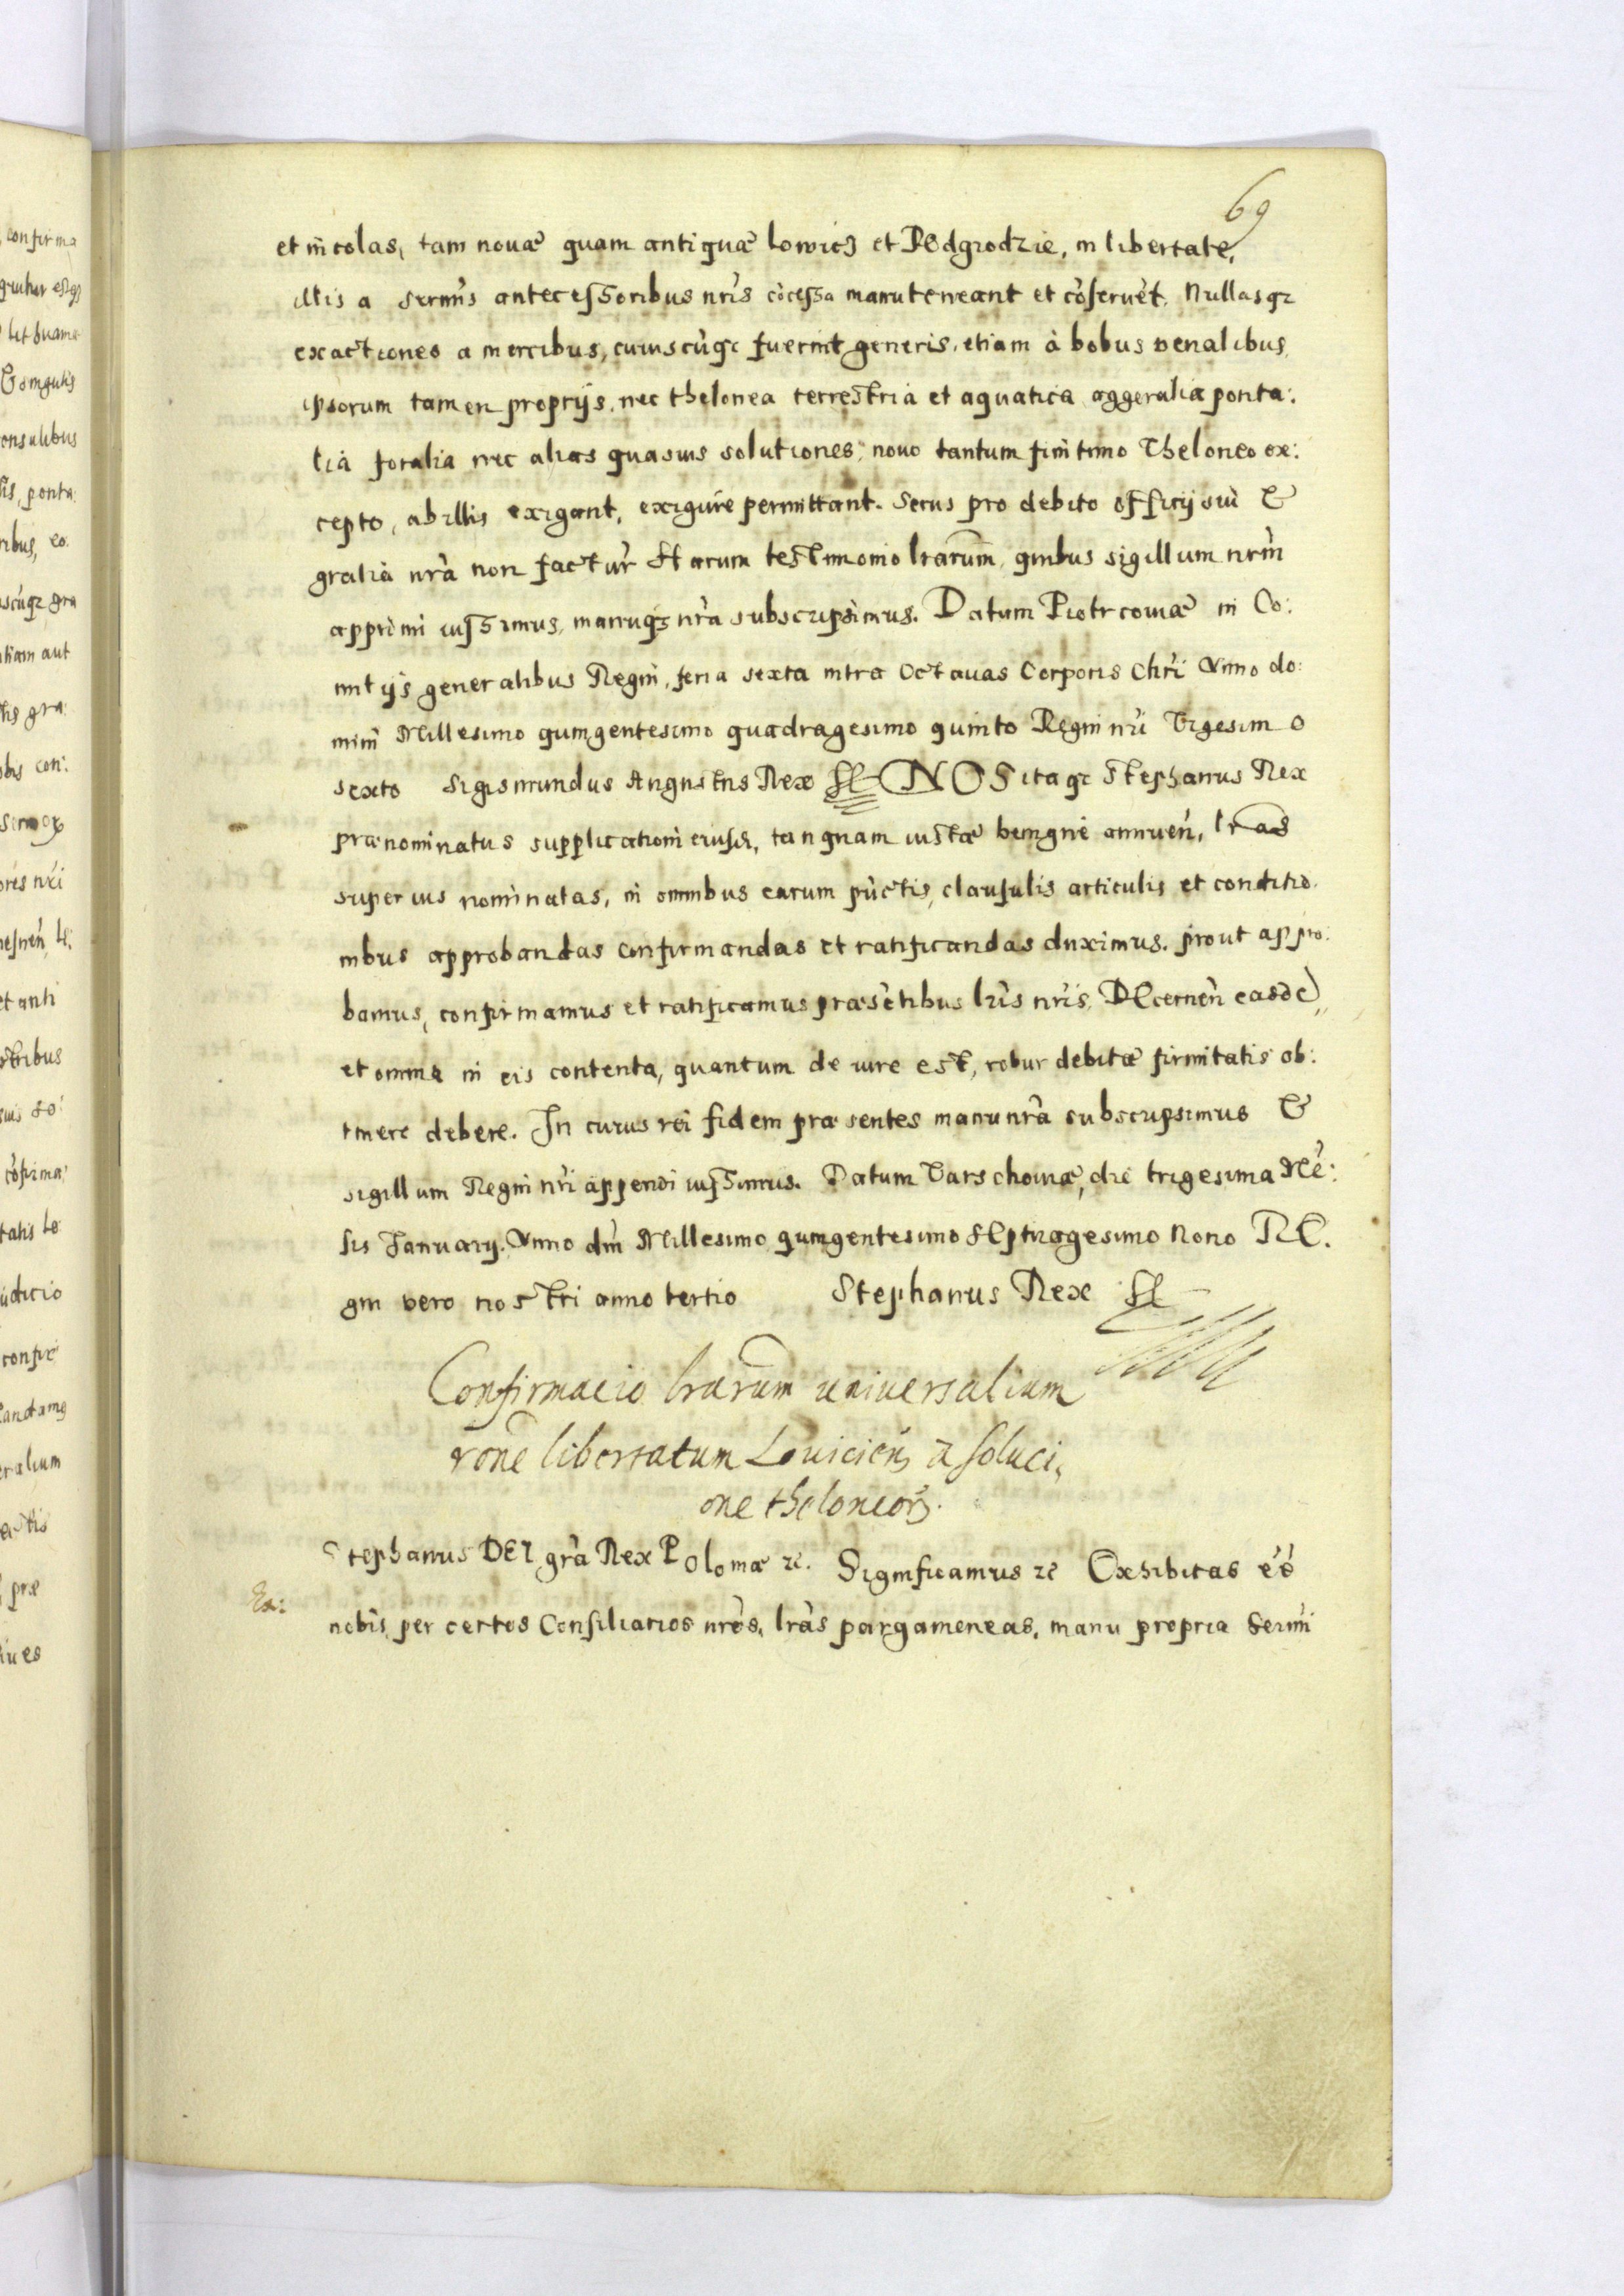 69
et incolas, tam nouæ quam antiquæ Lowicz et POdgrodzie, in libertate,
illis a sermis antecessoribus nris cocessa manuteneant et coseruet. Nullasqz
exactiones a mercibus, cuiuscuqz fuerint generis, etiam à bobus venalibus
ipsorum tamen proprijs, nec thelonea terrestria et aquatica aggeralia ponta:
lia foralia nec alias quasuis solutiones, nouo tantum finitimo Theloneo ex:
cepto, ab illis exigant, exigiue permittant. Secus pro debito officij sui &
gratia nra non factur Harum testimonio lrarum, quibus sigillum nrm
apprimi iussimus, manuqz nra subscripsimus. Datum Piotrcouiæ in Co:
mitijs generalibus Regni, feria sexta intra Octauas Corporis Chri Anno do:
mini Millesimo quingentesimo quadragesimo quinto Regni nri Vigesimo
sexto Sigismundus Augustus Rex NOS itaqz Stephanus Rex
prænominatus supplicationi eiusd, tanquam iustæ benigne annuen, lras
superius nominatas, in omnibus earum puctis, clausulis articulis et conditio:
nibus approbandas confirmandas et ratificandas duximus. prout appro:
bamus, confirmamus et ratificamus præsetibus lris nris. DEcernen easde,
et omnia in eis contenta, quantum de iure est, robur debitæ firmitatis ob:
tinere debere. In cuius rei fidem præsentes manu nra subscripsimus &
sigillum Regni nri appendi iussimus. Datum Varschouiæ, die trigesima Me:
sis Januarij. Anno dni Millesimo quingentesimo SEptuagesimo Nono RE.
gni vero nostri anno tertio Stephanus Rex
Confirmacio lrarum uniuersalium
rone libertatum Louicien a soluci,
one theloneorz.
Stephanus DEI gra Rex Poloniæ zc. Significamus zc Exhibitas ee
Ex:
nobis per certos Consiliarios nros, lras pargameneas, manu propria Sermi